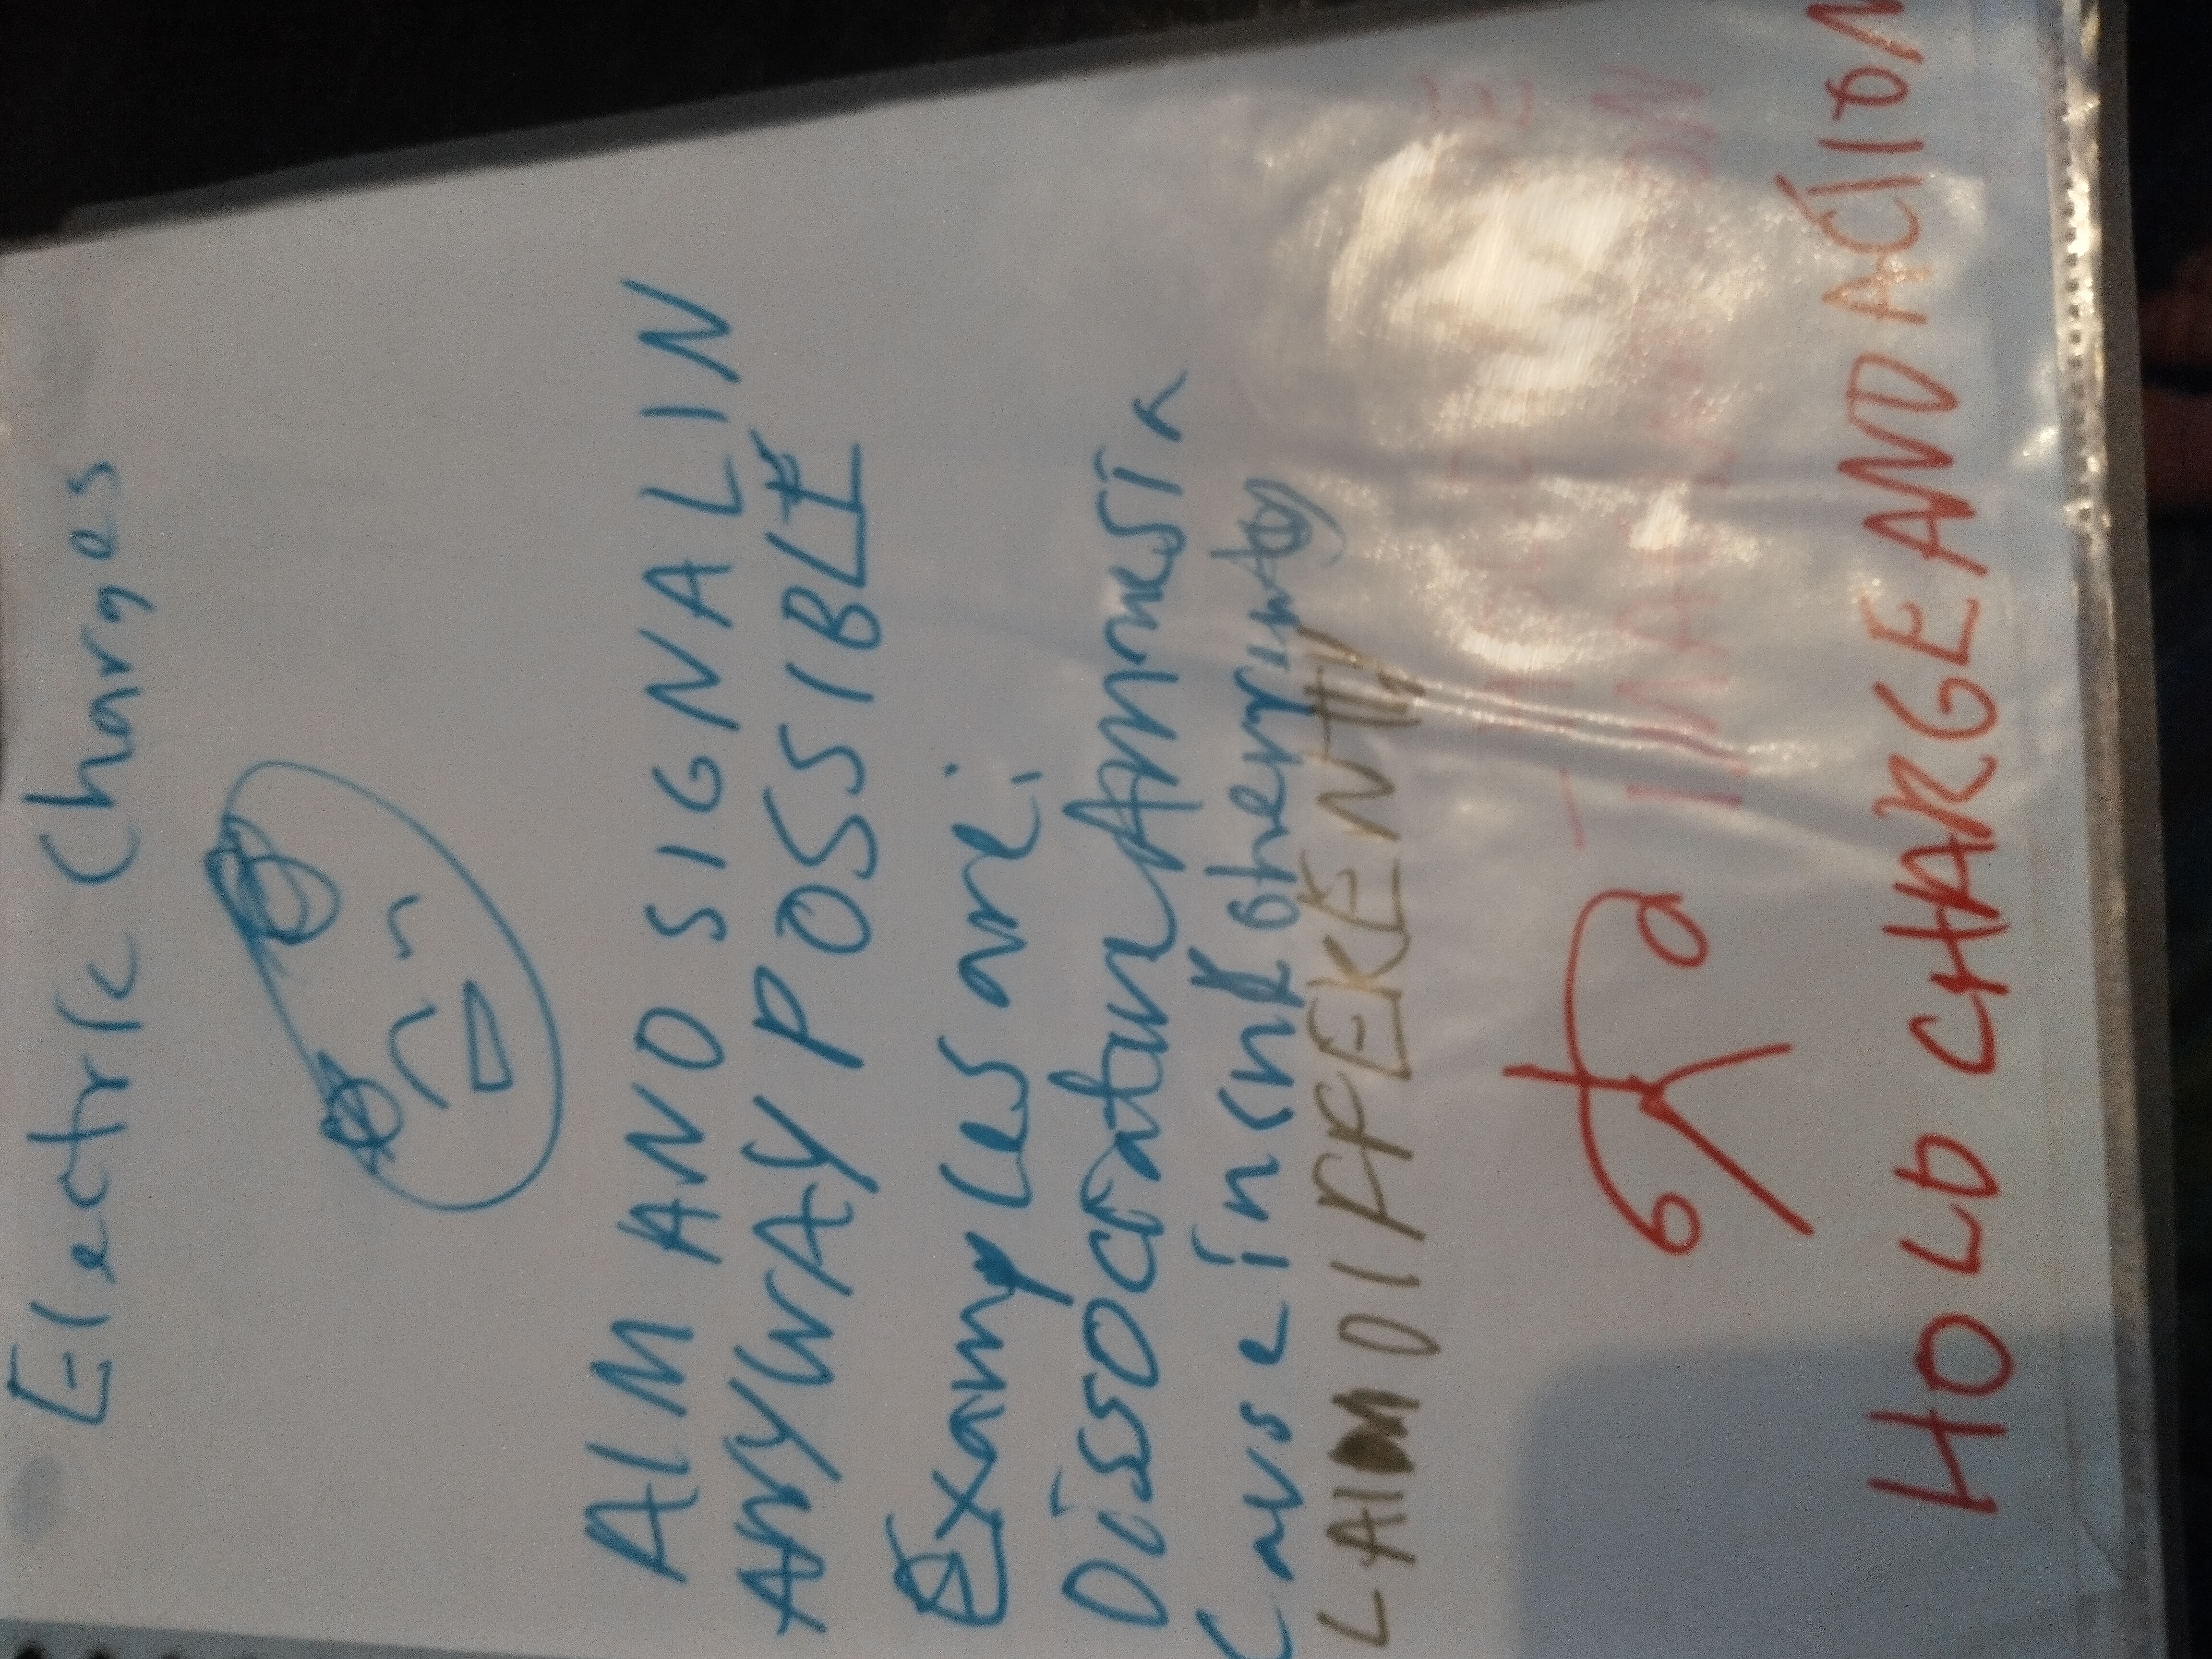 Electric Charges
AIM AND SIGNAL IN
ANYWAY POSSIBLE
Examples are:
Dissociative Amnesia
Cause in
LAID DIFFERENTLY
HOLD CHARGE AND ACTION